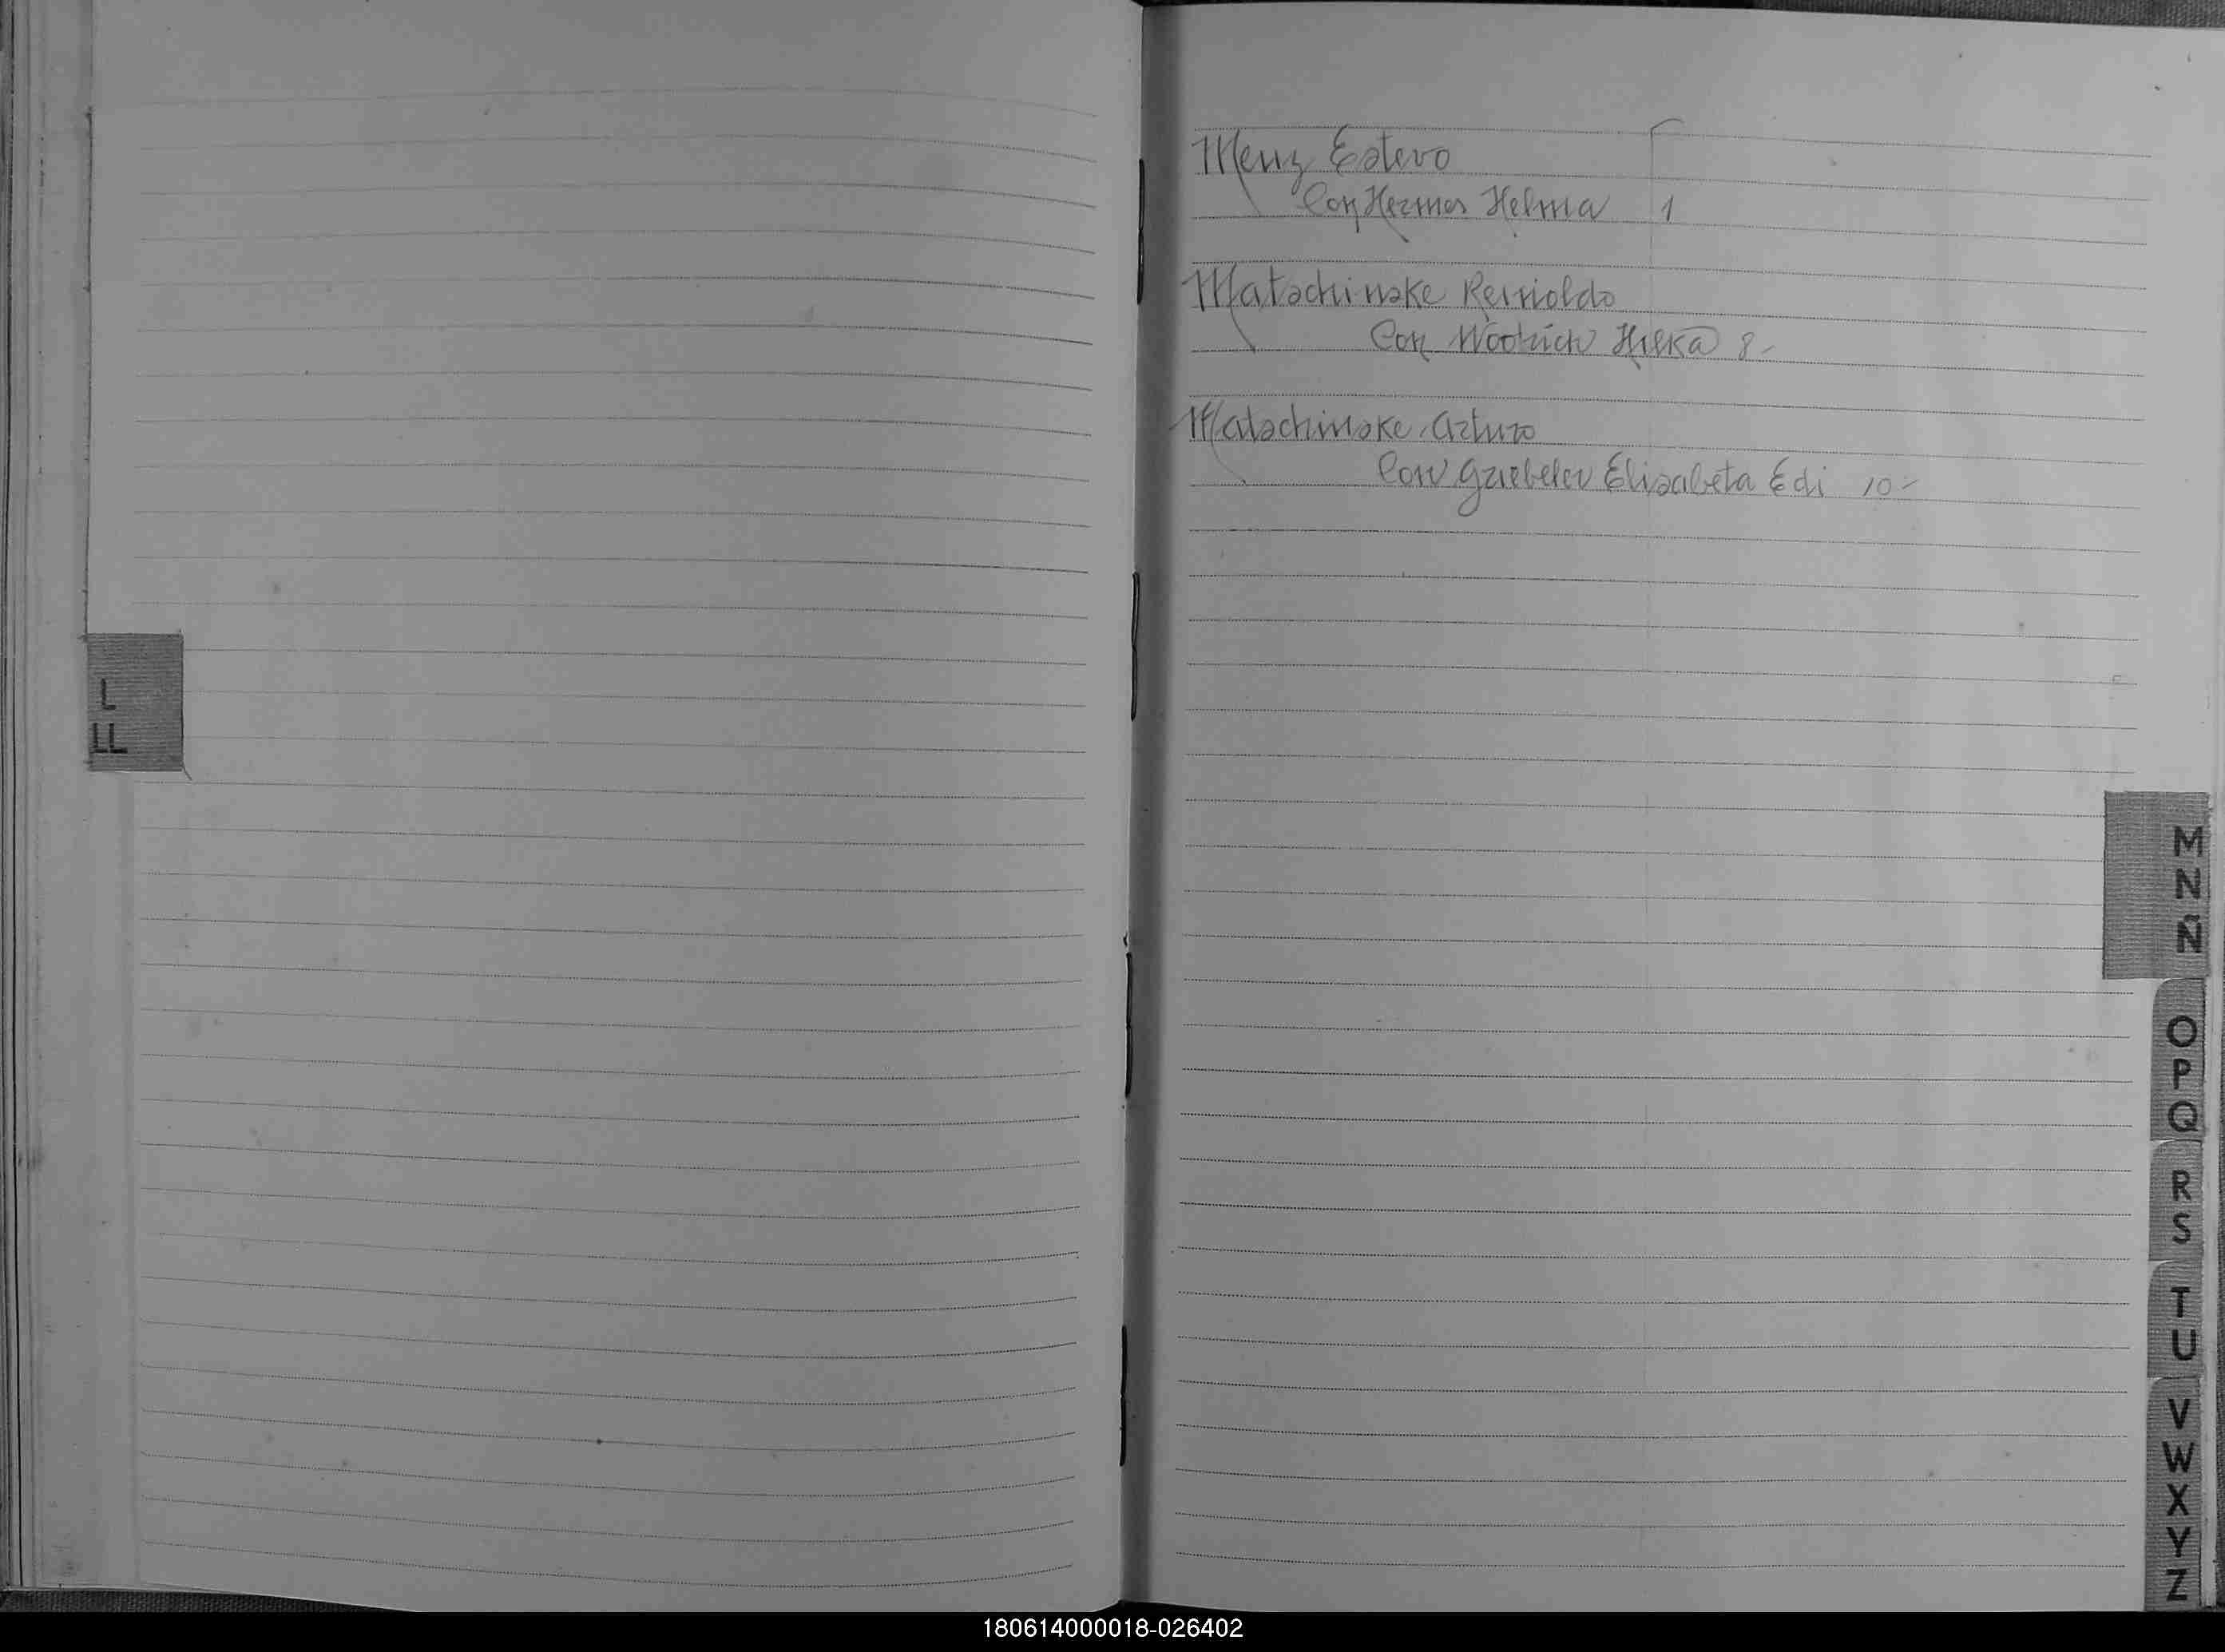 L
LL
Menz Estevo
Con Hermes Helma 1
Matschinske Reinoldo
Con Wootrich Hilka 8-
Matschinske Arturo
Con Griebeler Elisabeta Edi 10-
M
N
Ñ
O
P
Q
R
S
T
U
V
W
X
Y
Z
180614000018-026402